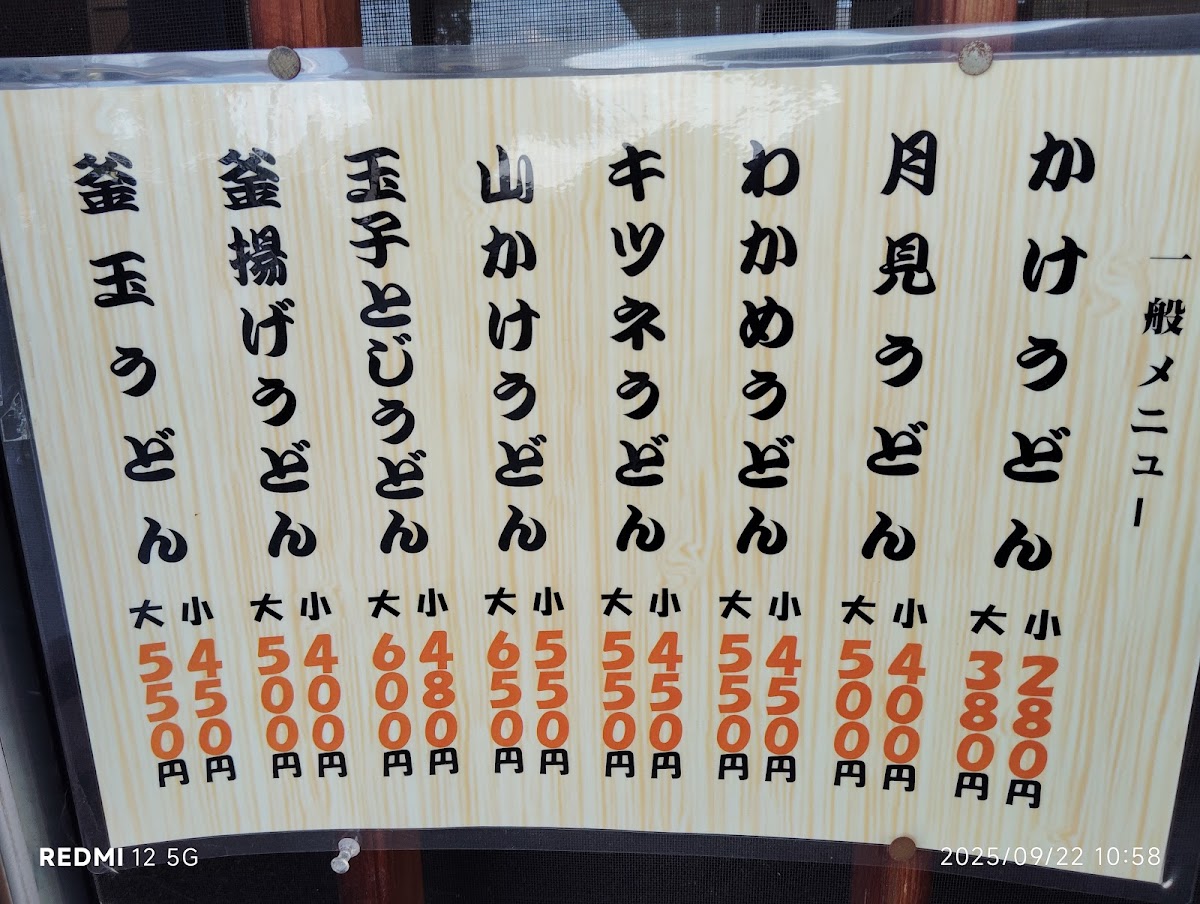 一般メニュー
かけうどん
小 280円
大 380円
月見うどん
小 400円
大 500円
わかめうどん
小 450円
大 550円
キツネうどん
小 450円
大 550円
山かけうどん
小 550円
大 650円
玉子とじうどん
小 480円
大 600円
釜揚げうどん
小 400円
大 500円
釜玉うどん
小 450円
大 550円
REDMI 12 5G
2025/09/22 10:58